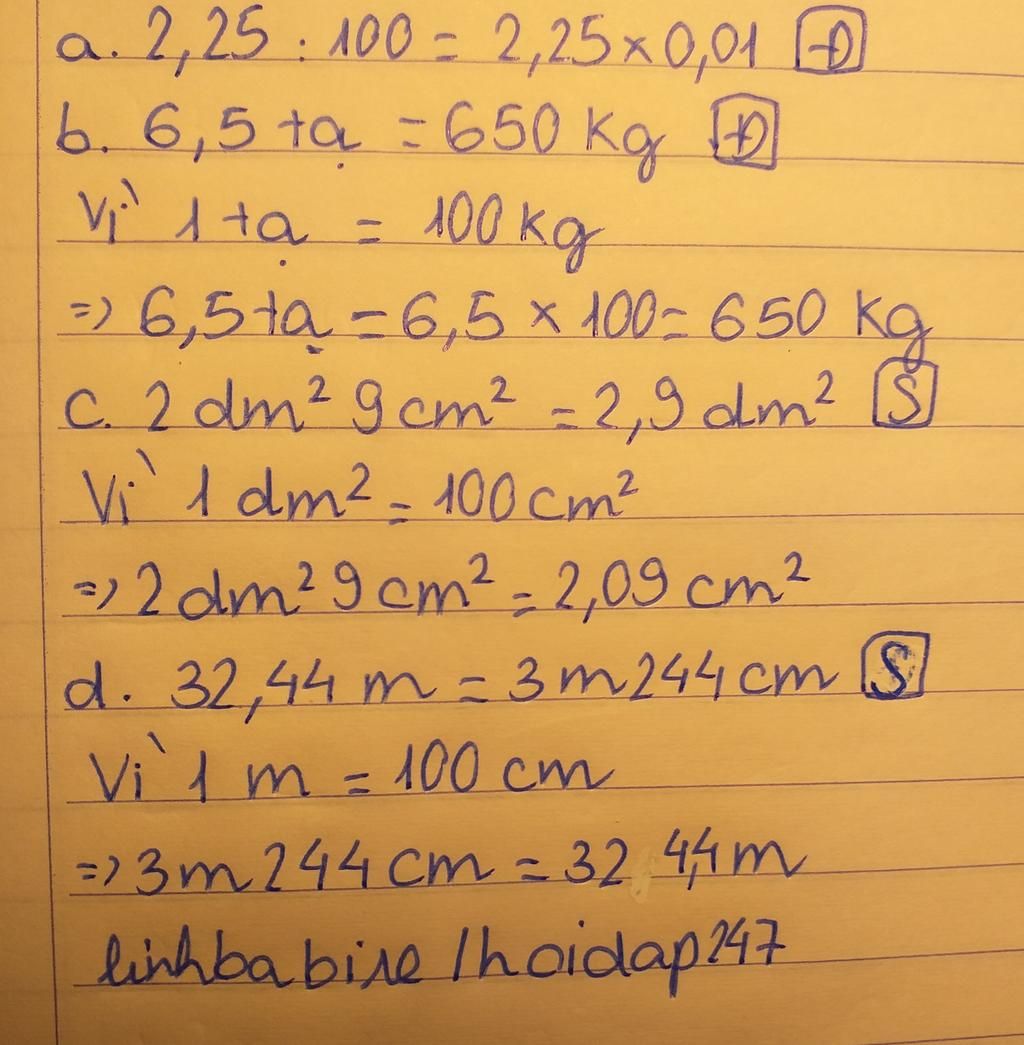 a. 2,25 : 100 = 2,25 x 0,01 Đ
b. 6,5 tạ = 650 kg Đ
Vì 1 tạ = 100 kg
=> 6,5 tạ = 6,5 x 100 = 650 kg
c. 2 dm² 9 cm² = 2,9 dm² S
Vì 1 dm² = 100 cm²
=> 2 dm² 9 cm² = 2,09 cm²
d. 32,44 m = 3 m 244 cm S
Vì 1 m = 100 cm
=> 3 m 244 cm = 32 4,4 m
linhbabire / hoidap247